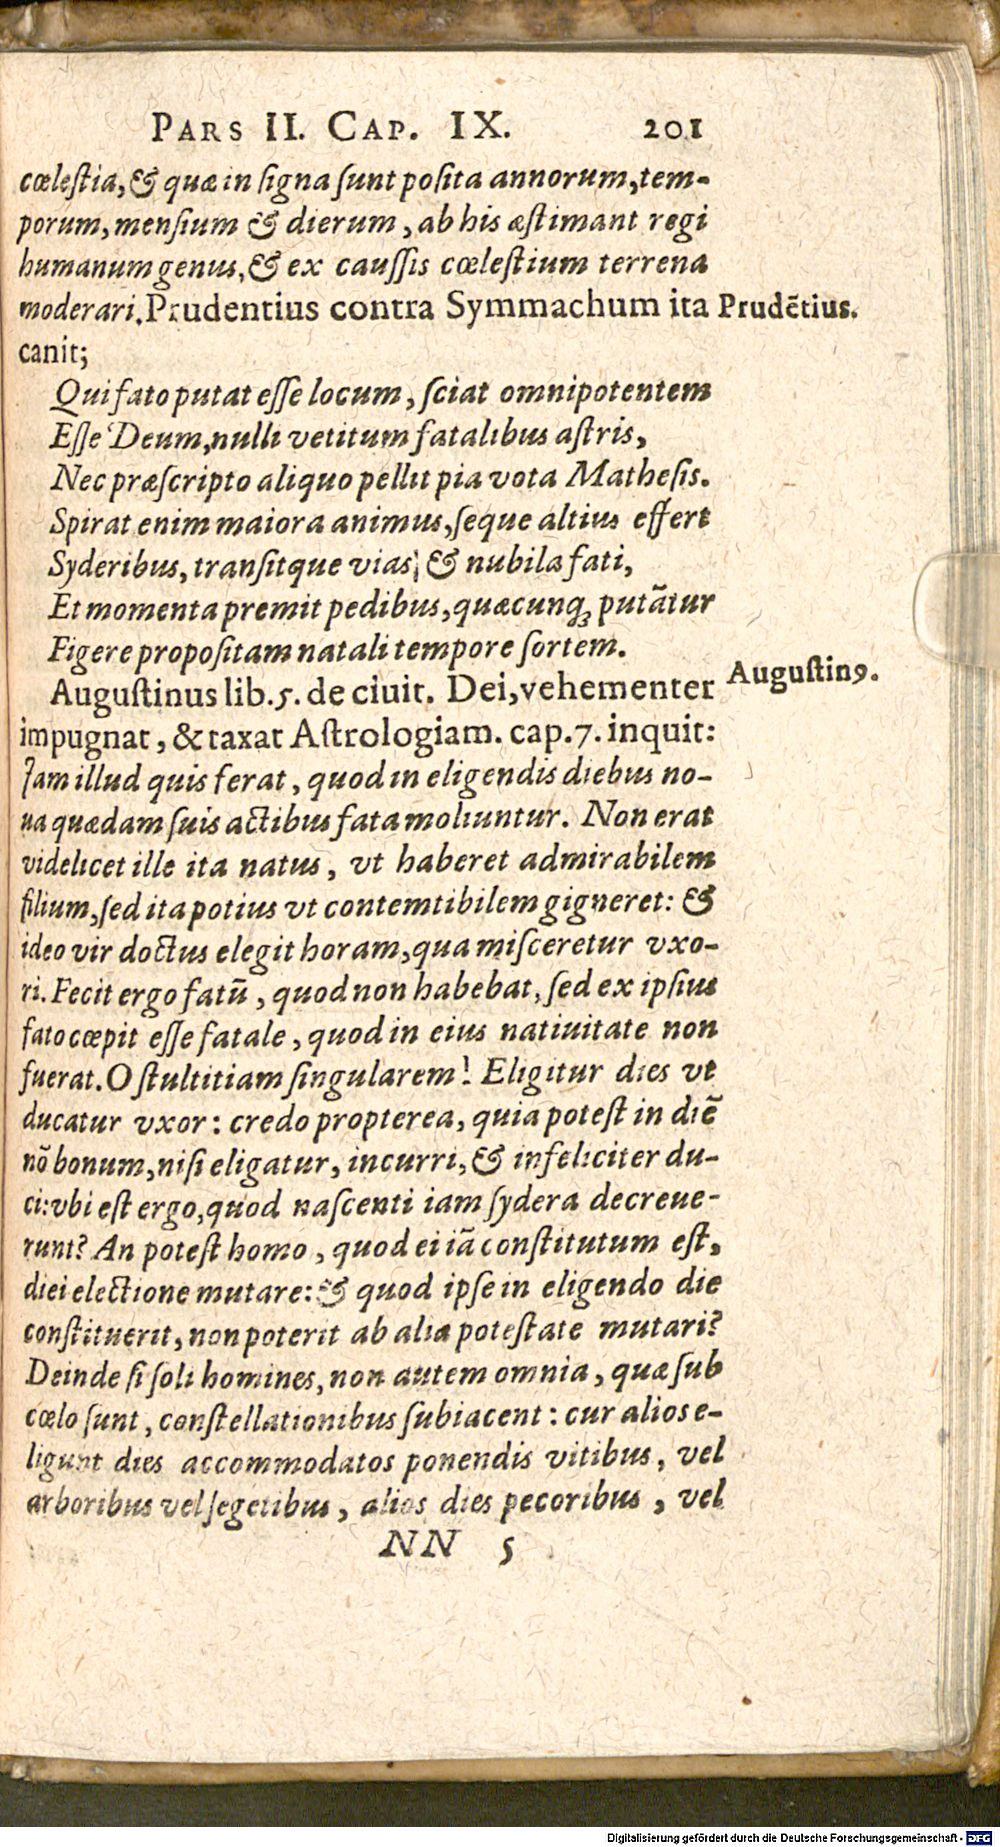 PARS II. CAP. IX. 201
cœleſtia, & quæ in ſigna ſunt poſita annorum, tem-
porum, menſium & dierum, ab his æſtimant regi
humanum genus, & ex cauſſis cœleſtium terrena
moderari. Prudentius contra Symmachum ita
Prudẽtius.
canit;
Qui fato putat eſſe locum, ſciat omnipotentem
Eſſe Deum, nulli vetitum fatalibus aſtris,
Nec præſcripto aliquo pellit pia vota Matheſis.
Spirat enim maiora animus, ſeque altius effert
Syderibus, tranſitque vias, & nubila fati,
Et momenta premit pedibus, quæcunq; putãtur
Figere propoſitam natali tempore ſortem.
Auguſtinus lib. 5. de ciuit. Dei, vehementer
Auguſtinꝰ.
impugnat, & taxat Aſtrologiam. cap. 7. inquit:
Jam illud quis ferat, quod in eligendis diebus no-
ua quædam ſuis actibus fata moliuntur. Non erat
videlicet ille ita natus, vt haberet admirabilem
filium, ſed ita potius vt contemtibilem gigneret: &
ideo vir doctus elegit horam, qua miſceretur vxo-
ri. Fecit ergo fatũ, quod non habebat, ſed ex ipſius
fato cœpit eſſe fatale, quod in eius natiuitate non
fuerat. O ſtultitiam ſingularem! Eligitur dies vt
ducatur vxor: credo propterea, quia poteſt in diẽ
nõ bonum, niſi eligatur, incurri, & infeliciter du-
ci: vbi eſt ergo, quod naſcenti iam ſydera decreue-
runt? An poteſt homo, quod ei iã conſtitutum eſt,
diei electione mutare: & quod ipſe in eligendo die
conſtituerit, non poterit ab alia poteſtate mutari?
Deinde ſi ſoli homines, non autem omnia, quæ ſub
cœlo ſunt, conſtellationibus ſubiacent: cur alios e-
ligunt dies accommodatos ponendis vitibus, vel
arboribus vel ſegetibus, alios dies pecoribus, vel
NN 5
Digitalisierung gefördert durch die Deutsche Forschungsgemeinschaft - DFG